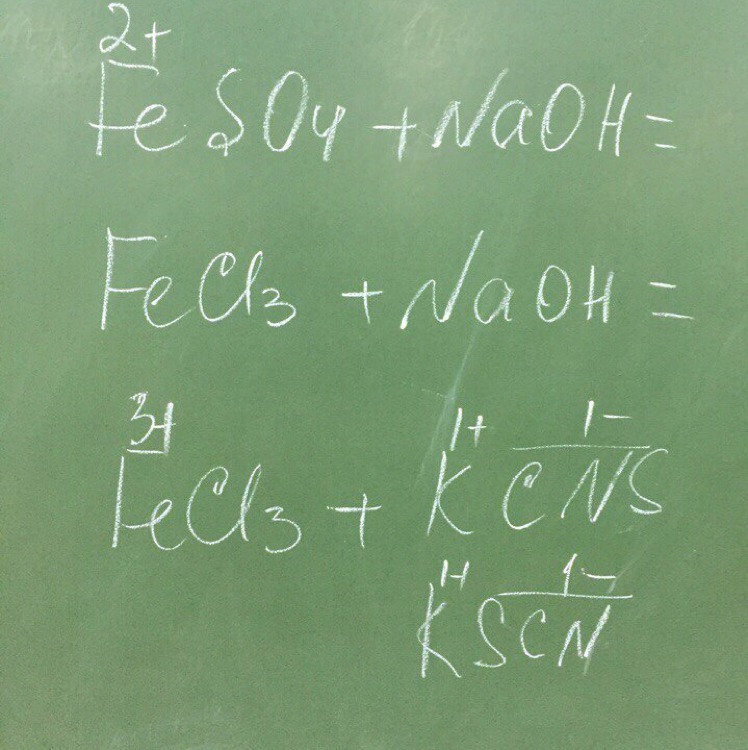 2+
FeSO4 + NaOH =
FeCl3 + NaOH =
3+ 1+ 1-
FeCl3 + KCNS
1+ 1-
KSCN